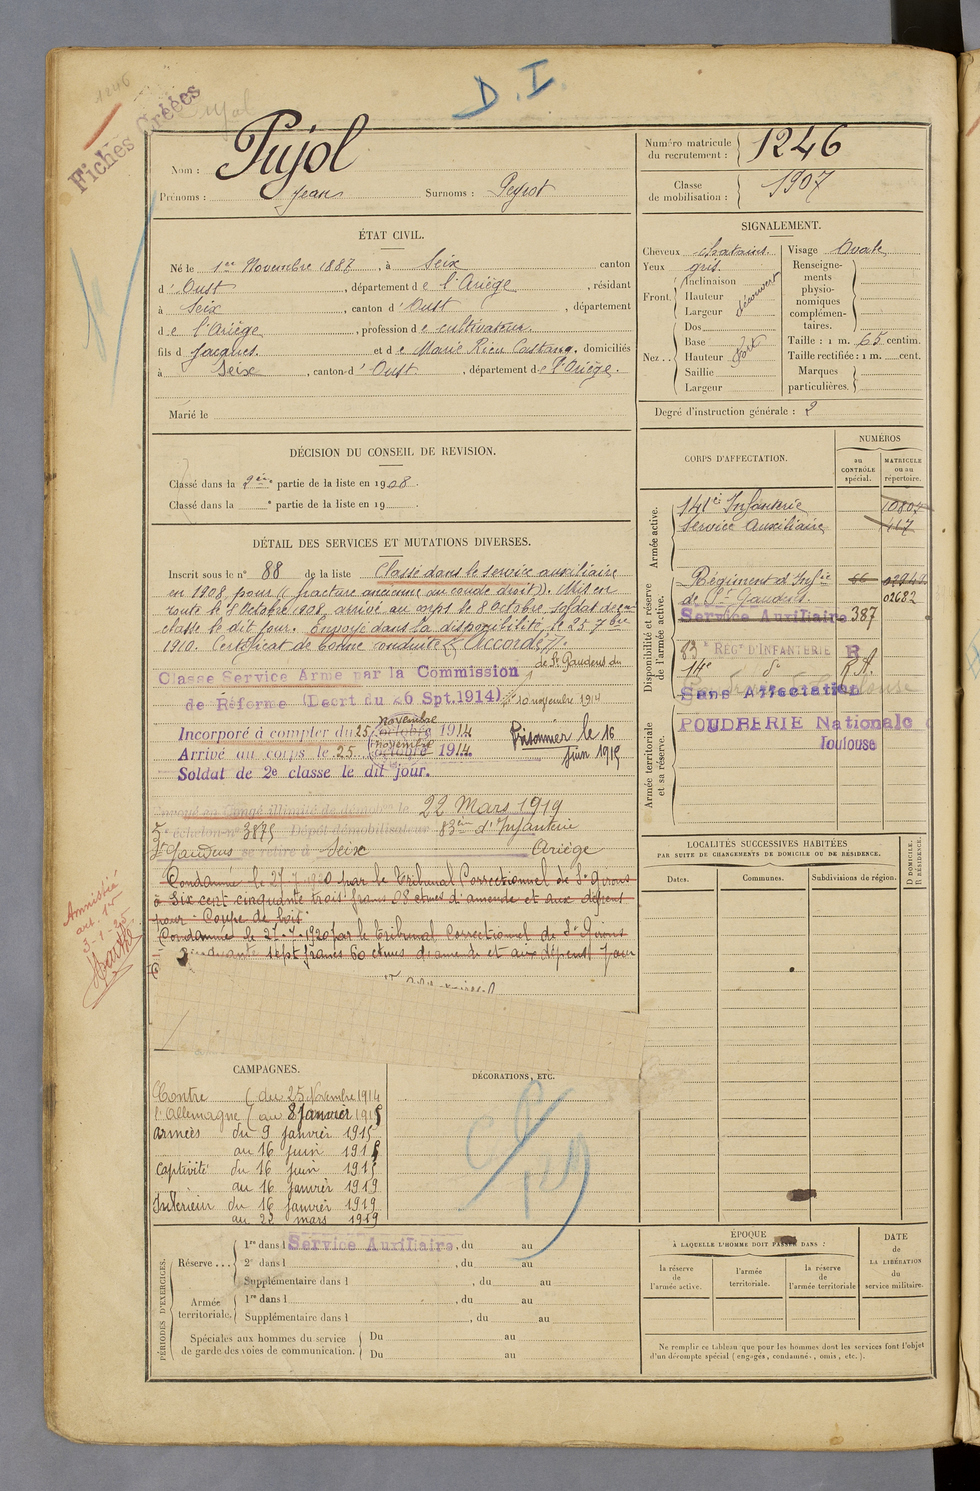 1246
Fichés Créées
Pujol
D. I.
Nom : Pujol
Prénoms : Jean Surnoms : Peyrot
Numéro matricule du recrutement : 1246
Classe de mobilisation : 1907
ÉTAT CIVIL.
Né le 1er Novembre 1887, à Seix canton
d'Oust, département de l'Ariège, résidant
à Seix, canton d'Oust, département
de l'Ariège, profession de cultivateur
fils d Jacques et de Marie Rieu Castaing, domiciliés
à Seix, canton d'Oust, département de l'Ariège.
Marié le
SIGNALEMENT.
Cheveux chatains. Visage Ovale
Yeux gris.
Front. Inclinaison
Hauteur découvert
Largeur
Nez.. Dos
Base
Hauteur fort
Saillie
Largeur
Renseignements physionomiques complémentaires.
Taille : 1 m. 65 centim.
Taille rectifiée : 1 m. cent.
Marques particulières.
Degré d'instruction générale : 2
DÉCISION DU CONSEIL DE REVISION.
Classé dans la 2ème partie de la liste en 1908.
Classé dans la e partie de la liste en 19
DÉTAIL DES SERVICES ET MUTATIONS DIVERSES.
Inscrit sous le n° 88 de la liste Classé dans le service auxiliaire
en 1908 pour (( fracture ancienne du coude droit )). Mis en
route le 8 Octobre 1908, arrivé au corps le 8 Octobre, soldat de 2e
classe le dit jour. Envoyé dans la disponibilité le 25 7bre
1910. Certificat de bonne conduite (( Accordé )).
Classe Service Armé par la Commission de St Gaudens du
de Réforme (Decrt du 26 Spt.1914) 10 novembre 1914
Incorporé à compter du 25 novembre octobre 1914
Arrivé au corps le 25 novembre octobre 1914
Soldat de 2e classe le dit jour.
Prisonnier le 16
Juin 1915
Envoyé en Congé illimité de démob le 22 Mars 1919
5e échelon n° 3875 Dépôt démobilisateur 83ème d'Infanterie
St Gaudens se retire à Seix Ariège
Condamné le 27-7-1920 par le Tribunal Correctionnel de St Girons
à Six cent cinquante trois francs 08 ctmes d'amende et aux dépens
pour Coupe de bois
Condamné le 27-7-1920 par le tribunal correctionnel de St Girons
cinquante sept francs 60 ctmes d'amende et aux dépens pour
Amnistié
art. 1er
3-1-25
CORPS D'AFFECTATION.
NUMÉROS
au CONTRÔLE spécial.
MATRICULE ou au répertoire.
Armée active.
141e Infanterie
Service Auxiliaire 117
Disponibilité et réserve de l'armée active.
Régiment d'Infie 66
de St Gaudens. 02682
Service Auxiliaire 387
83e REGt D'INFANTERIE R
14e do R.A.
Sans Affectation
Armée territoriale et sa réserve.
POUDRERIE Nationale
Toulouse
LOCALITÉS SUCCESSIVES HABITÉES
PAR SUITE DE CHANGEMENTS DE DOMICILE OU DE RÉSIDENCE.
Dates. Communes. Subdivisions de région. D DOMICILE. R RÉSIDENCE.
CAMPAGNES.
Contre du 25 Novembre 1914
l'Allemagne au 8 Janvier 1915
Armées du 9 janvier 1915
au 16 juin 1915
Captivité du 16 juin 1915
au 16 janvier 1919
Intérieur du 16 janvier 1919
au 22 mars 1919
DÉCORATIONS, ETC.
PÉRIODES D'EXERCICES.
Réserve... 1re dans l Service Auxiliaire, du au
2e dans l , du au
Supplémentaire dans l , du au
Armée territoriale. 1re dans l , du au
Supplémentaire dans l , du au
Spéciales aux hommes du service de garde des voies de communication. Du au
Du au
ÉPOQUE
À LAQUELLE L'HOMME DOIT PASSER DANS :
la réserve de l'armée active.
l'armée territoriale.
la réserve de l'armée territoriale
DATE de LA LIBÉRATION du service militaire.
Ne remplir ce tableau que pour les hommes dont les services font l'objet
d'un décompte spécial (engagés, condamné., omis, etc.).